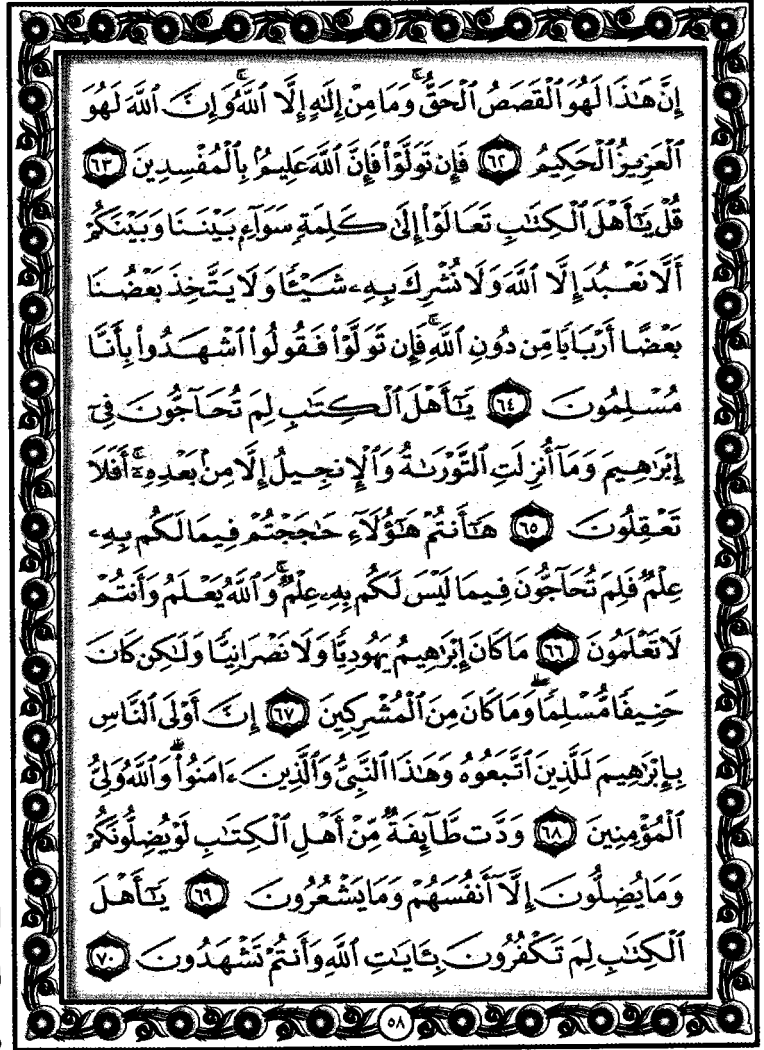 إِنَّ هَٰذَا لَهُوَ ٱلْقَصَصُ ٱلْحَقُّ ۚ وَمَا مِنْ إِلَٰهٍ إِلَّا ٱللَّهُ ۚ وَإِنَّ ٱللَّهَ لَهُوَ
ٱلْعَزِيزُ ٱلْحَكِيمُ ٦٢ فَإِن تَوَلَّوْا۟ فَإِنَّ ٱللَّهَ عَلِيمٌۢ بِٱلْمُفْسِدِينَ ٦٣
قُلْ يَٰٓأَهْلَ ٱلْكِتَٰبِ تَعَالَوْا۟ إِلَىٰ كَلِمَةٍ سَوَآءٍۭ بَيْنَنَا وَبَيْنَكُمْ
أَلَّا نَعْبُدَ إِلَّا ٱللَّهَ وَلَا نُشْرِكَ بِهِۦ شَيْـًٔا وَلَا يَتَّخِذَ بَعْضُنَا
بَعْضًا أَرْبَابًا مِّن دُونِ ٱللَّهِ ۚ فَإِن تَوَلَّوْا۟ فَقُولُوا۟ ٱشْهَدُوا۟ بِأَنَّا
مُسْلِمُونَ ٦٤ يَٰٓأَهْلَ ٱلْكِتَٰبِ لِمَ تُحَآجُّونَ فِىٓ
إِبْرَٰهِيمَ وَمَآ أُنزِلَتِ ٱلتَّوْرَىٰةُ وَٱلْإِنجِيلُ إِلَّا مِنۢ بَعْدِهِۦٓ ۚ أَفَلَا
تَعْقِلُونَ ٦٥ هَٰٓأَنتُمْ هَٰٓؤُلَآءِ حَٰجَجْتُمْ فِيمَا لَكُم بِهِۦ
عِلْمٌ فَلِمَ تُحَآجُّونَ فِيمَا لَيْسَ لَكُم بِهِۦ عِلْمٌ ۚ وَٱللَّهُ يَعْلَمُ وَأَنتُمْ
لَا تَعْلَمُونَ ٦٦ مَا كَانَ إِبْرَٰهِيمُ يَهُودِيًّا وَلَا نَصْرَانِيًّا وَلَٰكِن كَانَ
حَنِيفًا مُّسْلِمًا ۖ وَمَا كَانَ مِنَ ٱلْمُشْرِكِينَ ٦٧ إِنَّ أَوْلَى ٱلنَّاسِ
بِإِبْرَٰهِيمَ لَلَّذِينَ ٱتَّبَعُوهُ وَهَٰذَا ٱلنَّبِىُّ وَٱلَّذِينَ ءَامَنُوا۟ ۗ وَٱللَّهُ وَلِىُّ
ٱلْمُؤْمِنِينَ ٦٨ وَدَّت طَّآئِفَةٌ مِّنْ أَهْلِ ٱلْكِتَٰبِ لَوْ يُضِلُّونَكُمْ
وَمَا يُضِلُّونَ إِلَّآ أَنفُسَهُمْ وَمَا يَشْعُرُونَ ٦٩ يَٰٓأَهْلَ
ٱلْكِتَٰبِ لِمَ تَكْفُرُونَ بِـَٔايَٰتِ ٱللَّهِ وَأَنتُمْ تَشْهَدُونَ ٧٠
٥٨